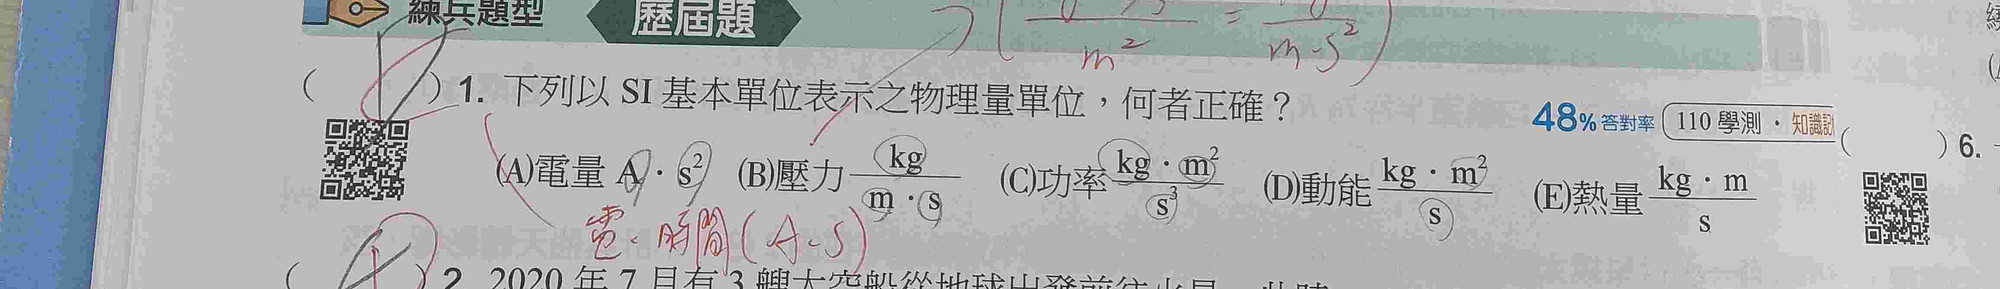 練兵題型 歷屆題
m² m·s²
( )1. 下列以 SI 基本單位表示之物理量單位，何者正確？
48%答對率 110 學測・知識記
( )6.
(A)電量 A · s² (B)壓力 kg / m · s (C)功率 kg · m² / s³ (D)動能 kg · m² / s (E)熱量 kg · m / s
電·時間(A·s)
( )2. 2020 年 7 月有 3 艘太空船從地球出發前往火星，此時